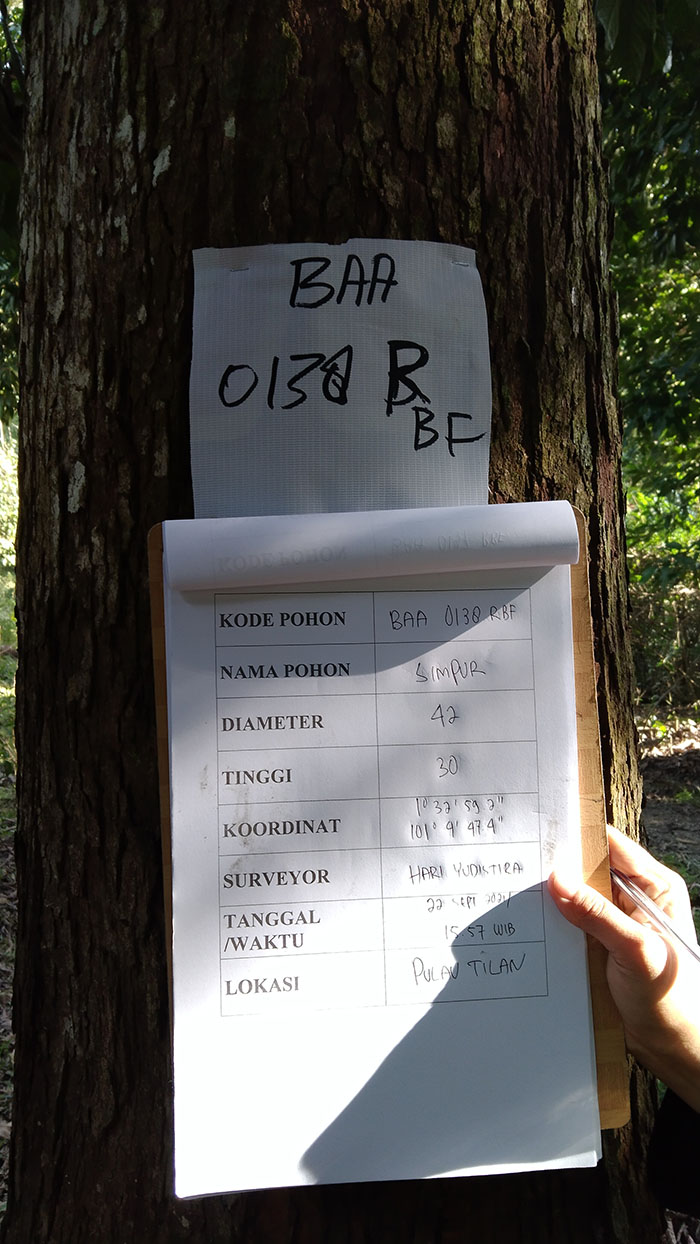 BAA
0138 R
BF
KODE POHON BAA 0138 RBF
NAMA POHON SIMPUR
DIAMETER 42
TINGGI 30
KOORDINAT 1° 32' 59.2"
101° 9' 47.4"
SURVEYOR HARI YUDISTIRA
TANGGAL 22 SEPT 2021/
/WAKTU 15:57 WIB
LOKASI PULAU TILAN